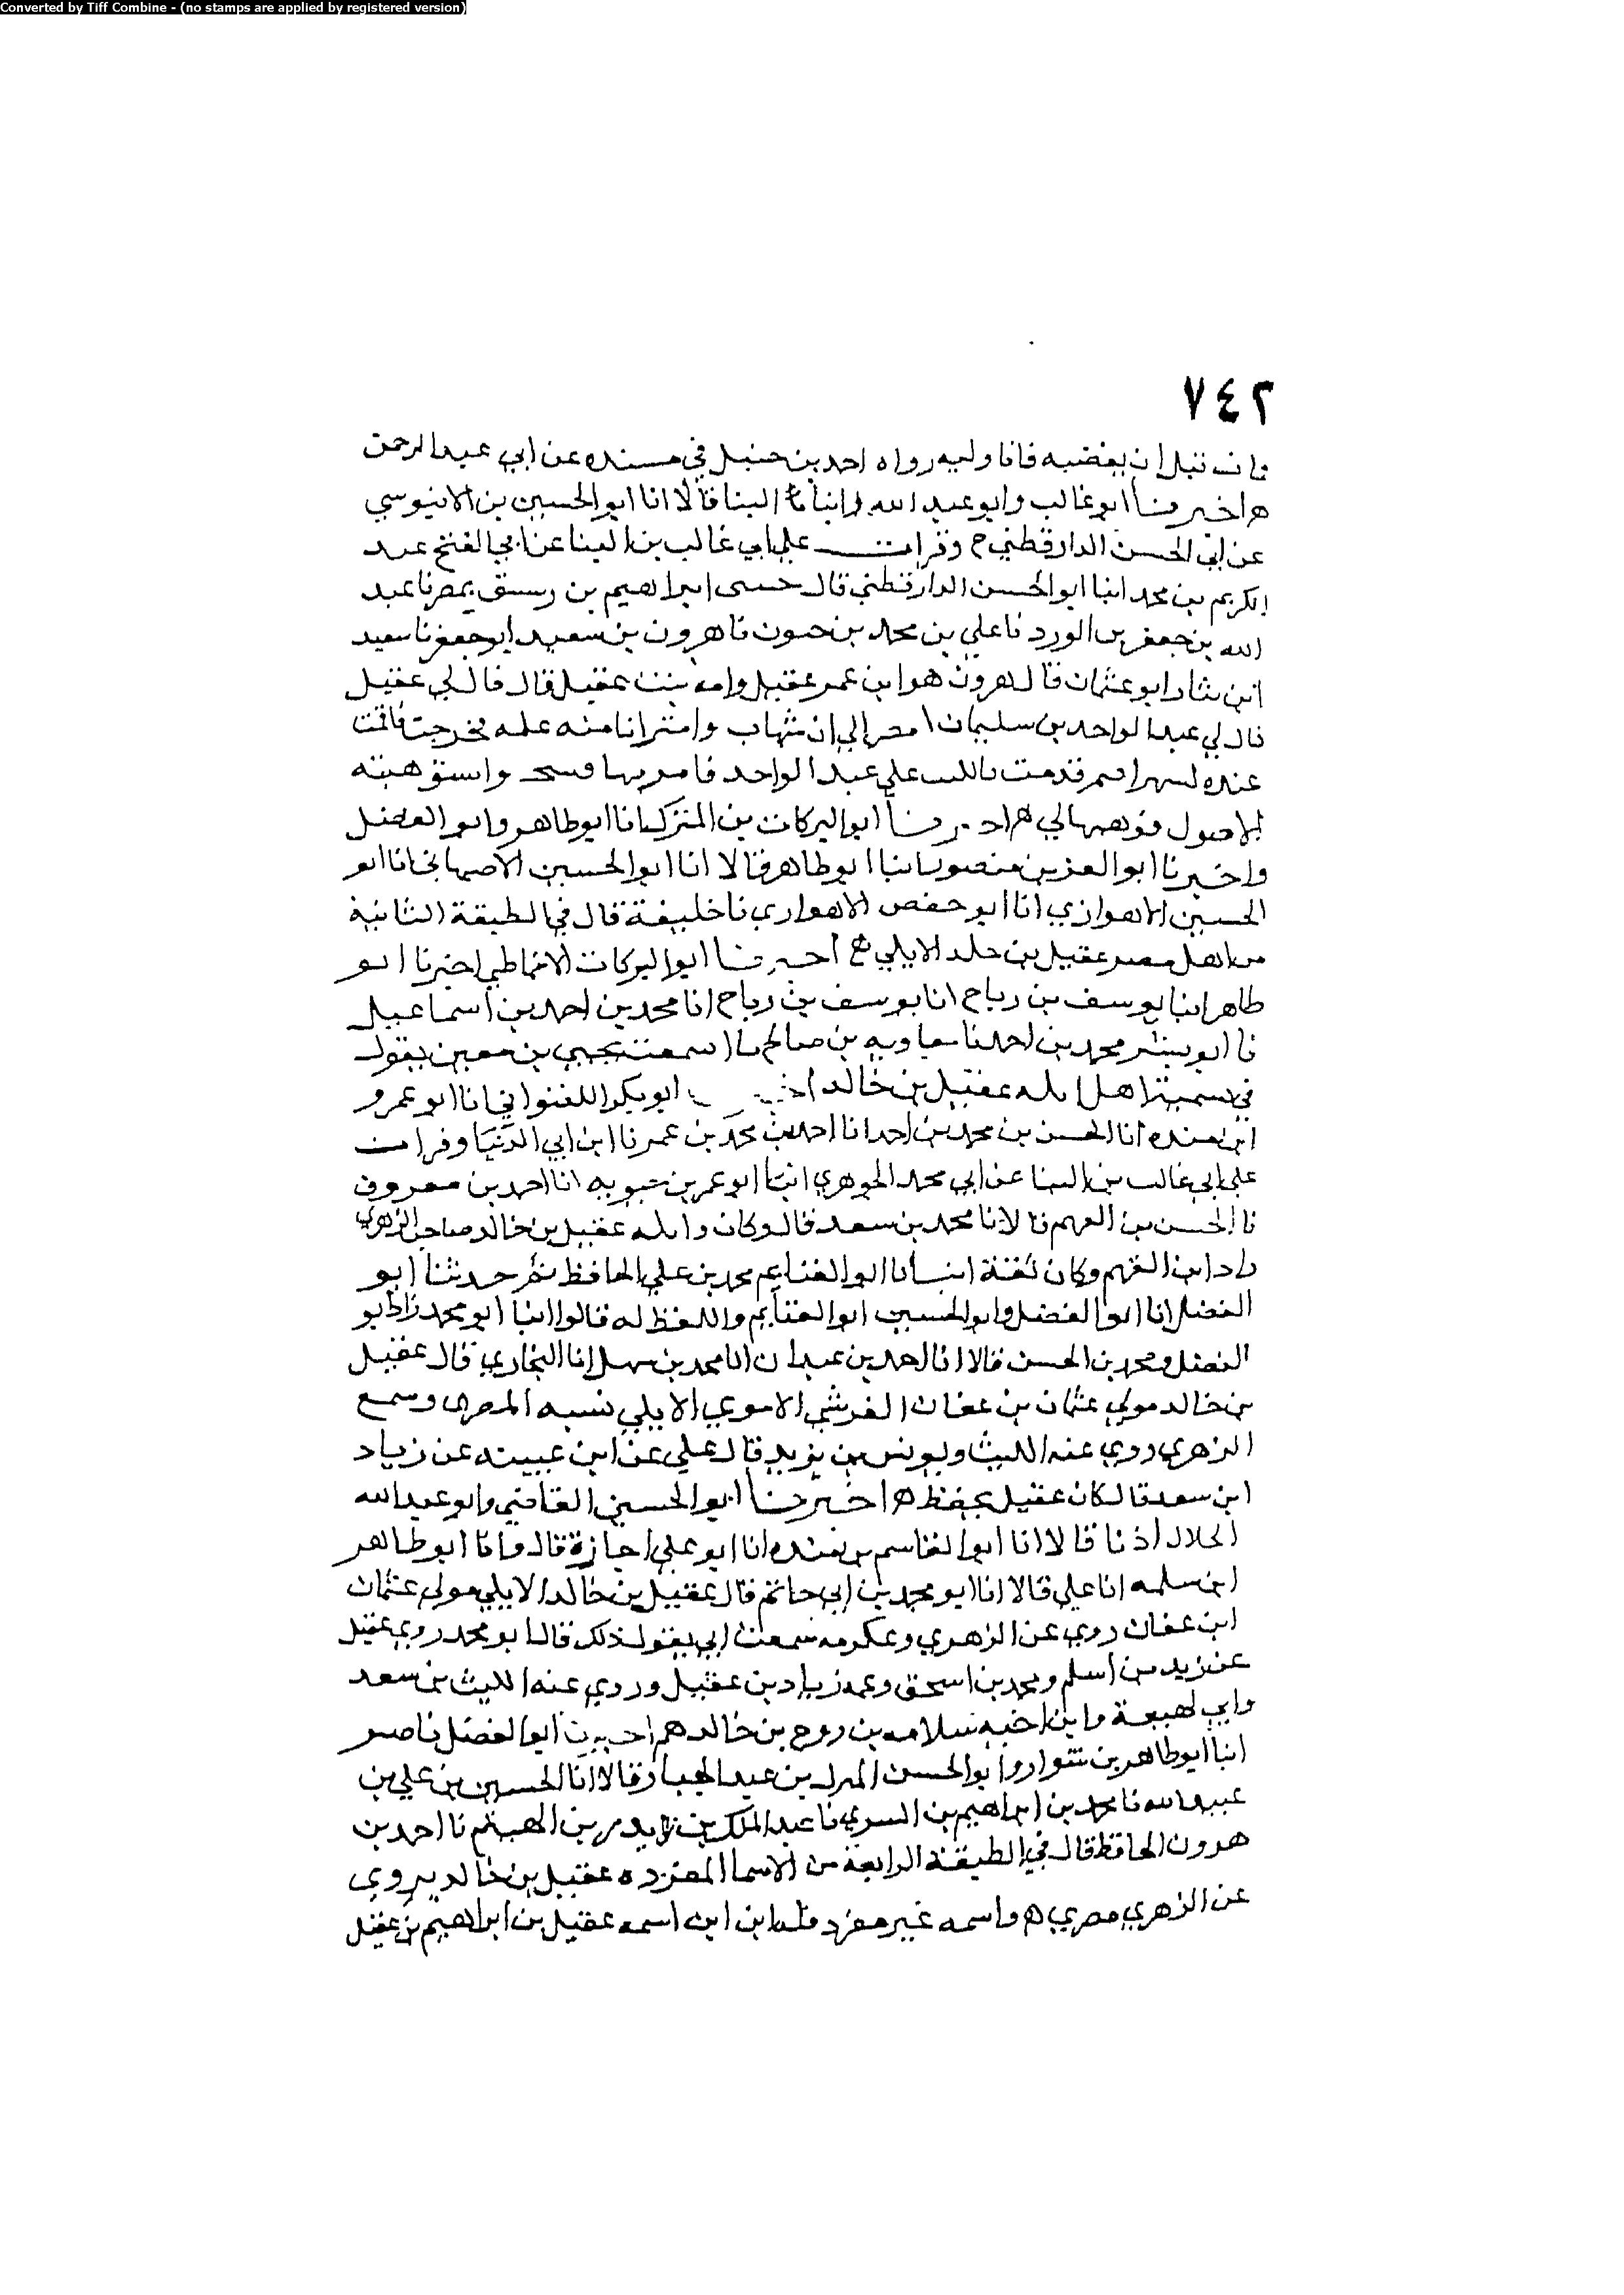 Converted by Tiff Combine - (no stamps are applied by registered version)
٧٤٢
فان قبل ان يغضبه فانا وليه رواه احمد بن حنبل في مسنده عن ابي عبد الرحمن
ه اخبرنا ابو غالب وابو عبد الله ابنا البنا قالا انا ابو الحسين بن الابنوسي
عن ابي الحسن الدارقطني ح وقرات على ابي غالب بن البنا عن ابي الفتح عبد
الكريم بن محمد انبا ابو الحسن الدارقطني قال حسى ابراهيم بن رسق بمصر نا عبد
الله بن جعفر بن الورد نا علي بن محمد بن حسون نا هرون بن سعيد ابو جعفر نا سعيد
ابن بشار ابو عثمان قال هرون هو ابن عمر عقيل وامه بنت عقيل قال قال لي عقيل
قال لي عبد الواحد بن سليمان امصر الى ابن شهاب وانا منه علمه فخرجت فاقمت
عنده قدمت على عبد الواحد فامر بها هبته
الاصول فوهبها لي ه اخبرنا ابو البركات بن انا ابو طاهر وابو الفضل
واخبرنا ابو العز بن منصور انبا ابو طاهر قالا انا ابو الحسين الاصبهاني انا ابو
الحسين الاهوازي انا ابو حفص الاهوازي نا خليفة قال في الطبقة الثانية
من اهل مصر عقيل بن خلد الايلي اخبرنا ابو البركات الانماطي اخبرنا ابو
طاهر انبا يوسف بن رباح انا يوسف بن رباح انا محمد بن احمد بن اسماعيل
نا ابو بشر محمد بن احمد نا معاويه بن صالح نا سمعت يحيى بن معين يقول
في تسمية اهل ايله عقيل بن خالد ابو بكر اللفتواني انا ابو عمرو
ابن منده انا الحسن بن محمد بن احمد انا احمد بن محمد بن عمر نا ابن ابي الدنيا وقرات
على ابي غالب بن البنا عن ابي محمد الجوهري انبا ابو عمر بن حيويه انا احمد بن معروف
نا الحسن بن الفهم قالا نا محمد بن سعد قال وكان بايله عقيل بن خالد صاحب الزهري
زاد ابن الفهم وكان ثقة انبانا ابو الغنايم محمد بن علي الحافظ ثم حدثنا ابو
الفضل انا ابو الفضل وابو الحسين ابو الغنايم واللفظ له قالوا انبا ابو محمد زاد ابو
الفضل ومحمد بن الحسن قالا انا احمد بن عبدان انا محمد بن سهل انا البخاري قال عقيل
بن خالد مولى عثمان بن عفان القرشي الاموي الايلي نسبه المصرى وسمع
الزهري روي عنه الليث ويونس بن يزيد قال علي عن ابن عيينه عن زياد
ابن سعد قال كان عقيل يحفظ ه اخبرنا ابو الحسين القاضي وابو عبد الله
الخلال اذنا قالا انا ابو القاسم بن منده انا ابو علي اجازة قال وانا ابو طاهر
ابن سلمه انا علي قالا انا ابو محمد بن ابي حاتم قال عقيل بن خالد الايلي مولى عثمان
ابن عفان روي عن الزهري وعكرمه سمعت ابي يقول ذلك قال ابو محمد روي عقيل
عن زيد بن اسلم ومحمد بن اسحق وعمه زياد بن عقيل وروي عنه الليث بن سعد
وابي لهيعة وابن اخيه سلامه بن روح بن خالد ه اخبرنا ابو الفضل ناصر
انبا ابو طاهر بن سوار وابو الحسن المبرك بن عبد الجبار قالا انا الحسين بن علي بن
عبيد الله نا محمد بن ابراهيم بن السري نا عبد الملك بن بدر بن الهيثم نا احمد بن
هرون الحافظ قال في الطبقة الرابعة من الاسما المفرده عقيل بن خالد يروي
عن الزهري مصري ه واسمه غير مفرد فلعل ابن ابنه اسمه عقيل بن ابراهيم بن عقيل